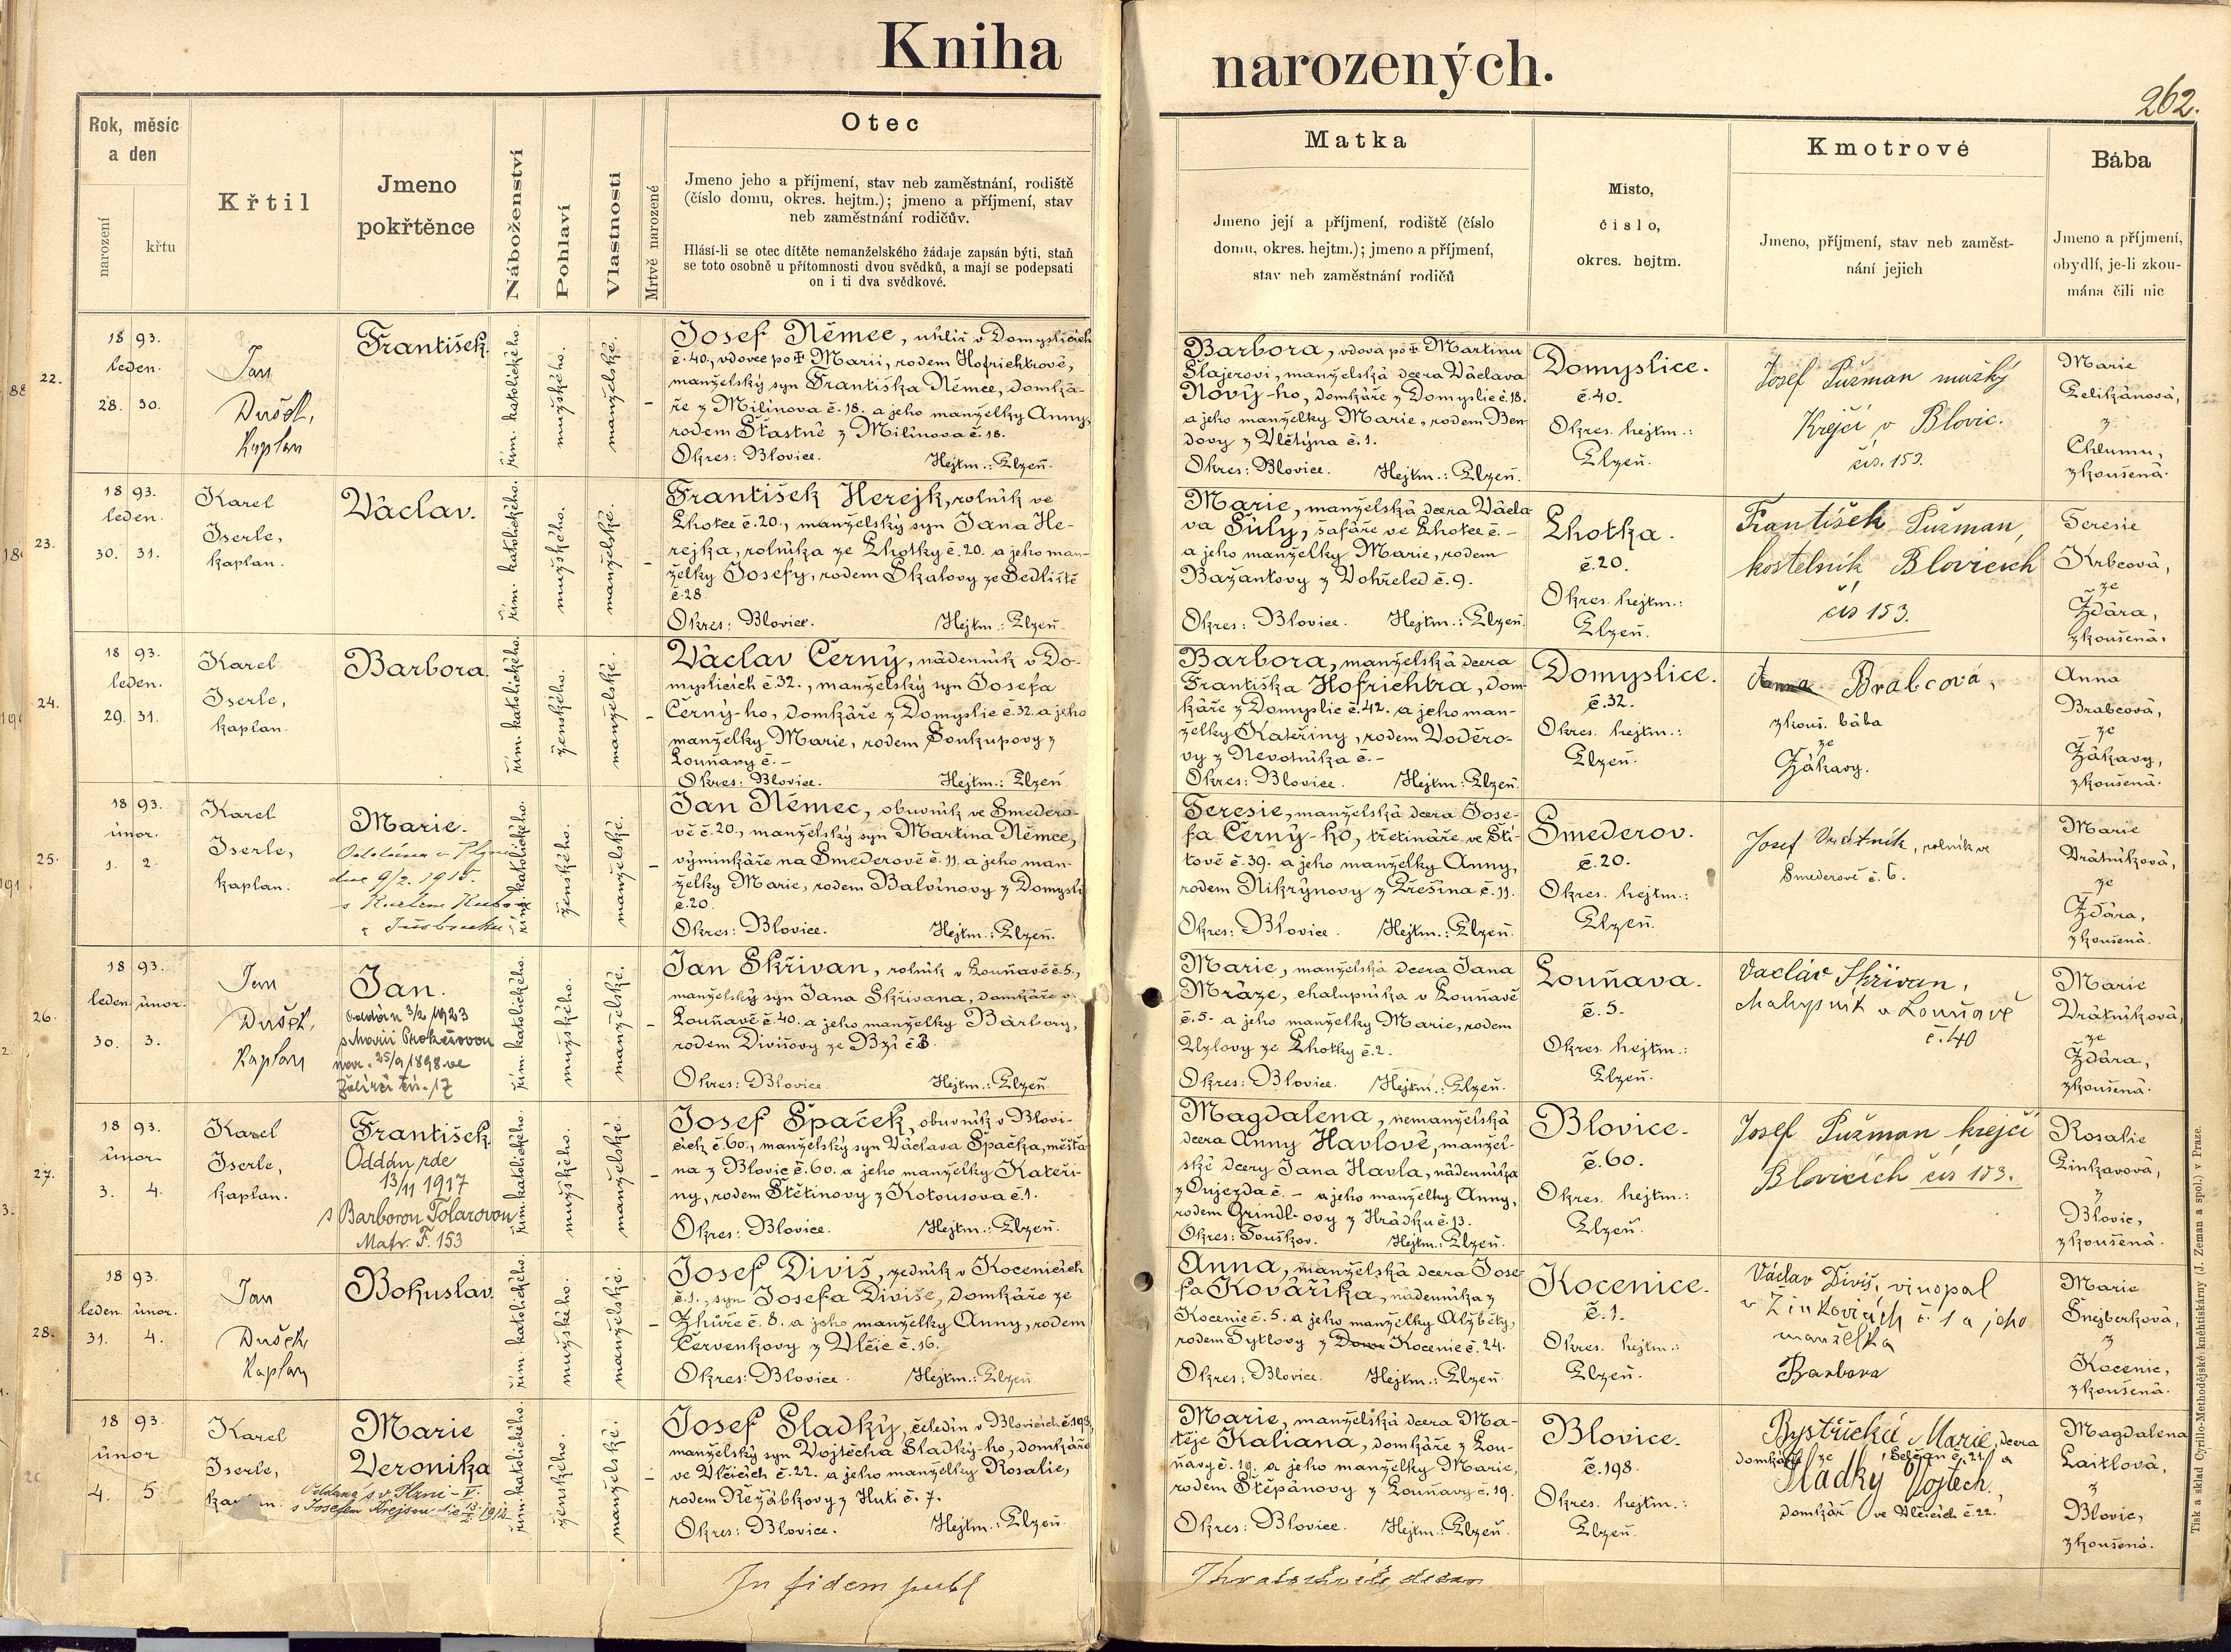 Kniha
narozených.
262.
Rok, měsíc
a den
narození
křtu
Křtil
Jmeno
pokřtěnce
Náboženství
Pohlaví
Vlastnosti
Mrtvě narozené
Otec
Jmeno jeho a příjmení, stav neb zaměstnání, rodiště
(číslo domu, okres. hejtm.); jmeno a příjmení, stav
neb zaměstnání rodičův.
Hlásí-li se otec dítěte nemanželského žádaje zapsán býti, staň
se toto osobně u přítomnosti dvou svědků, a mají se podepsati
on i ti dva svědkové.
Matka
Jmeno její a příjmení, rodiště (číslo
domu, okres. hejtm.); jmeno a příjmení,
stav neb zaměstnání rodičů
Místo,
číslo,
okres. hejtm.
Kmotrové
Jmeno, příjmení, stav neb zaměst-
nání jejich
Bába
Jmeno a příjmení,
obydlí, je-li zkou-
mána čili nic
22.
18 93.
leden.
28. 30.
Jan
Dušek,
Kaplan
František.
řím. katolického.
mužského.
manželské.
–
Josef Němec, uhlíř v Domyslicích
č. 40., vdovec po ☨ Marii, rodem Hofrichtrové,
manželský syn Františka Němce, domká-
ře z Milínova č. 18. a jeho manželky Anny,
rodem Šťastné z Milínova č. 18.
Okres: Blovice. Hejtm.: Plzeň.
Barbora, vdova po ☨ Martinu
Šlajerovi, manželská dcera Václava
Nový-ho, domkáře z Domyslic č. 18.
a jeho manželky Marie, rodem Ben-
dovy z Vlčtýna č. 1.
Okres: Blovice. Hejtm.: Plzeň.
Domyslice.
č. 40.
Okres. hejtm.:
Plzeň.
Josef Pužman mužký
Krejčí v Blovic.
čís. 153.
Marie
Pelikánová,
z
Chlumu,
zkoušená.
23.
18 93.
leden.
30. 31.
Karel
Iserle,
kaplan.
Václav.
řím. katolického.
mužského.
manželské.
–
František Herejk, rolník ve
Lhotce č. 20., manželský syn Jana He-
rejka, rolníka ze Lhotky č. 20. a jeho man-
želky Josefy, rodem Skalovy ze Sedliště
č. 28.
Okres: Blovice. Hejtm.: Plzeň.
Marie, manželská dcera Václa-
va Šúly, šafáře ve Lhotce č. –
a jeho manželky Marie, rodem
Bažantovy z Vohřeled č. 9.
Okres: Blovice. Hejtm.: Plzeň.
Lhotka.
č. 20.
Okres. hejtm.:
Plzeň.
František Pužman,
kostelník Blovicích
čís 153.
Teresie
Krbcová,
ze
Ždára,
zkoušená.
24.
18 93.
leden.
29. 31.
Karel
Iserle,
kaplan.
Barbora.
řím. katolického.
ženského.
manželské.
–
Václav Černý, nádenník v Do-
myslicích č. 32., manželský syn Josefa
Černý-ho, domkáře z Domyslic č. 32. a jeho
manželky Marie, rodem Soukupovy z
Louňavy č. –
Okres: Blovice. Hejtm.: Plzeň.
Barbora, manželská dcera
Františka Hofrichtra, dom-
káře z Domyslic č. 42. a jeho man-
želky Kateřiny, rodem Voděro-
vy z Nevotníka č. –
Okres: Blovice. Hejtm.: Plzeň.
Domyslice.
č. 32.
Okres. hejtm.:
Plzeň.
Anna Brabcová,
zkouš. bába
ze
Žákavy.
Anna
Brabcová,
ze
Žákavy,
zkoušená.
25.
18 93.
únor.
1. 2
Karel
Iserle,
kaplan.
Marie.
dne 9/2. 1915.
řím. katolického.
ženského.
manželské.
–
Jan Němec, obuvník ve Smedero-
vě č. 20., manželský syn Martina Němce,
výminkáře na Smederově č. 11. a jeho man-
želky Marie, rodem Balvínovy z Domyslic
č. 20.
Okres: Blovice. Hejtm.: Plzeň.
Teresie, manželská dcera Jose-
fa Černý-ho, třetináře ve Ští-
tově č. 39. a jeho manželky Anny,
rodem Nikrýnovy z Přešína č. 11.
Okres: Blovice. Hejtm.: Plzeň.
Smederov.
č. 20.
Okres. hejtm.:
Plzeň.
Josef Vrátník, rolník ve
Smederově č. 6.
Marie
Vrátníková,
ze
Ždára,
zkoušená.
26.
18 93.
leden. únor.
30. 3.
Jan
Dušek,
Kaplan
Jan.
Oddán 3/2 1923
s Marií Prokešovou
nar. 25/9 1898 ve
17
řím. katolického.
mužského.
manželské.
–
Jan Skřivan, rolník v Louňavě č. 5.,
manželský syn Jana Skřivana, domkáře v
Louňavě č. 40. a jeho manželky Barbory,
rodem Divišovy ze Bzí č. 3.
Okres: Blovice. Hejtm.: Plzeň.
Marie, manželská dcera Jana
Mráze, chalupníka v Louňavě
č. 5. a jeho manželky Marie, rodem
Uzlovy ze Lhotky č. 2.
Okres: Blovice. Hejtm.: Plzeň.
Louňava.
č. 5.
Okres. hejtm.:
Plzeň.
Vaclav Skřivan,
chalupník v Louňavě
č. 40
Marie
Vrátníková,
ze
Ždára,
zkoušená.
27.
18 93.
únor.
3. 4.
Karel
Iserle,
kaplan.
František.
Oddán zde
13/11 1917
s Barborou Tolarovou
Matr. F. 153
řím. katolického.
mužského.
manželské.
–
Josef Špaček, obuvník v Blovi-
cích č. 60., manželský syn Václava Špačka, měšťa-
na z Blovic č. 60. a jeho manželky Kateři-
ny, rodem Štětinovy z Kotousova č. 1.
Okres: Blovice. Hejtm.: Plzeň.
Magdalena, nemanželská
dcera Anny Havlové, manžel-
ské dcery Jana Havla, nádenníka
z Oujezda č. – a jeho manželky Anny,
rodem Grindl-ovy z Hrádku č. 13.
Okres: Touškov. Hejtm.: Plzeň.
Blovice.
č. 60.
Okres. hejtm.:
Plzeň.
Josef Pužman krejčí
Blovicích čís 153.
Rosalie
Linkavová,
z
Blovic,
zkoušená.
28.
18 93.
leden. únor.
31. 4.
Jan
Dušek
Kaplan
Bohuslav.
řím. katolického.
mužského.
manželské.
–
Josef Diviš, zedník v Kocenicích
č. 1., syn Josefa Diviše, domkáře ze
Zhůře č. 8. a jeho manželky Anny, rodem
Červenkovy z Vlčic č. 16.
Okres: Blovice. Hejtm.: Plzeň.
Anna, manželská dcera Jose-
fa Kováříka, nádenníka z
Kocenic č. 5. a jeho manželky Alžběty,
rodem Sytlovy z Kocenic č. 24.
Okres: Blovice. Hejtm.: Plzeň.
Kocenice.
č. 1.
Okres. hejtm.:
Plzeň.
Václav Diviš, vinopal
v Žinkovicích č. 1 a jeho
manželka
Barbora
Marie
Šnejberková,
z
Kocenic,
zkoušená.
18 93.
únor
4. 5
Karel
Iserle,
Marie
Veronika
Oddaná s v Plzni – V.
s Josefem Krejsou
řím. katolického.
ženského.
manželské.
–
Josef Sladký, čeledín v Blovicích č. 198,
manželský syn Vojtěcha Sladký-ho, domkáře
ve Vlčicích č. 22. a jeho manželky Rosalie,
rodem Řežábkovy z Huti č. 7.
Okres: Blovice. Hejtm.: Plzeň.
Marie, manželská dcera Ma-
těje Kaliana, domkáře z Lou-
ňavy č. 19. a jeho manželky Marie,
rodem Štěpánovy z Louňavy č. 19.
Okres: Blovice. Hejtm.: Plzeň.
Blovice.
č. 198.
Okres. hejtm.:
Plzeň.
Bystřická Marie, dcera
domkáře ze č. 21. a
Sladky Vojtech,
domkář ve Vlčicích č. 22.
Magdalena
Laitlová,
z
Blovic,
zkoušená.
In fidem publ
Tisk a sklad Cyrillo-Methodějské kněhtiskárny (J. Zeman a spol.) v Praze.